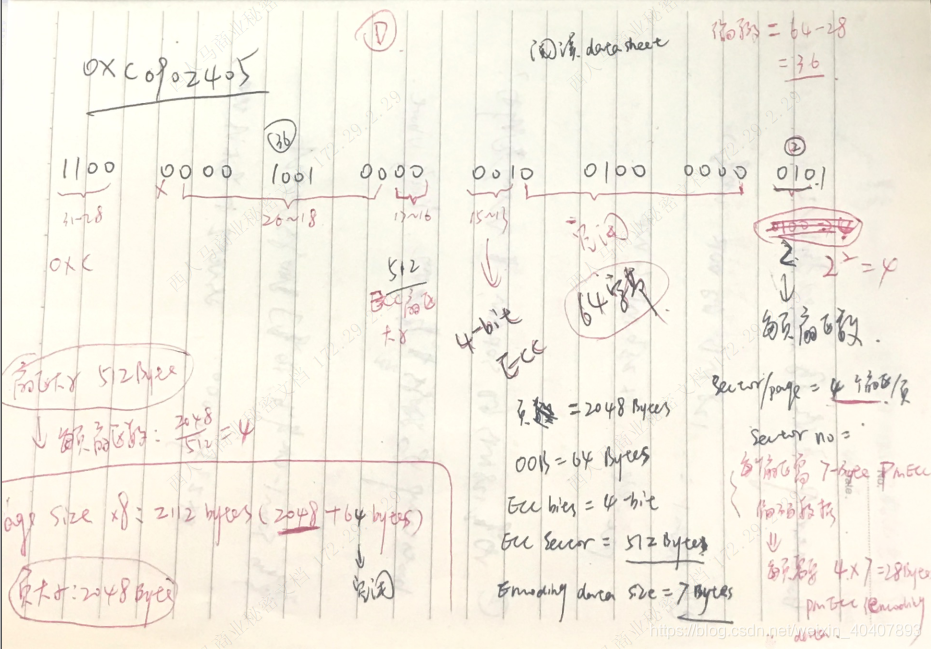 D
阅读 datasheet
偏移 = 64-28
= 36
0XC0902405
36
2
1100 0000 1001 0000 0010 0100 0000 0101
X
31~28
26~18
17~16
15~13
空闲
0XC
512
ECC扇区
大小
4-bit
ECC
64字节
2
2² = 4
每页扇区数.
扇区大小 512 Byte
每页扇区数: 2048/512 = 4
Sector/page = 4个扇区/页
页 = 2048 Bytes
OOB = 64 Bytes
Ecc bits = 4-bit
Ecc Sector = 512 Bytes
Encoding data size = 7 Bytes
Sector no =
每扇区需 7-Byte PmEcc
每页需 4×7=28 Byte
pmEcc encoding
data.
page size ×8 = 2112 bytes (2048 + 64 bytes)
空闲
页大小: 2048 Byte
https://blog.csdn.net/weixin_40407893